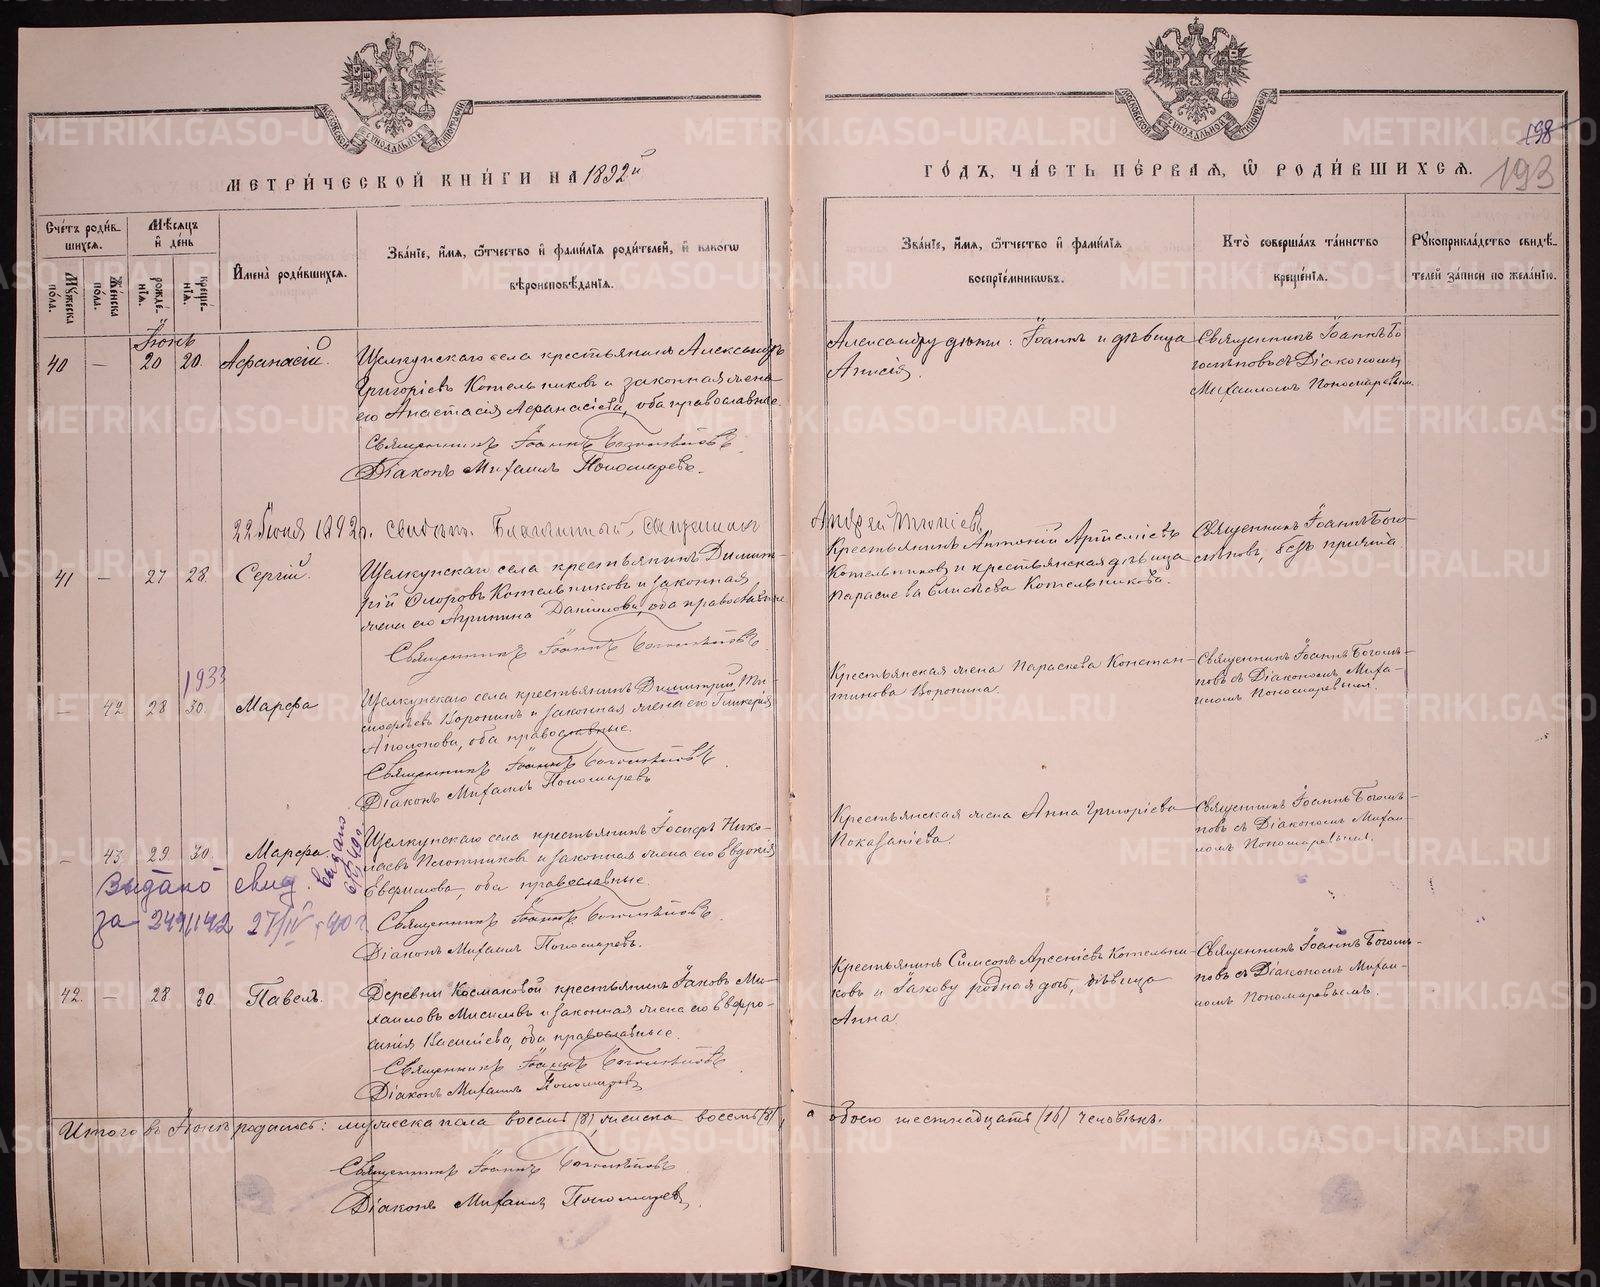 МЕТРИ́ЧЕСКОЙ КНИ́ГИ НА 1892й
ГО́ДЪ, ЧА́СТЬ ПЕ́РВАЯ, Ѡ РОДИ́ВШИХСЯ.
198
193
Сче́тъ роди́в-
шихся.
Мѣ́сяцъ
и де́нь
Имена̀ роди́вшихся.
Зва́нїе, и́мя, ѻ́тчество и фами́лїя роди́телей, и какогѡ
вѣроисповѣ́данїя.
Зва́нїе, и́мя, ѻ́тчество и фами́лїя
воспрїе́мниковъ.
Кто̀ соверша́лъ та́инство
креще́нїя.
Рꙋкоприкла́дство свидѣ́-
телей за́писи по жела́нїю.
Мꙋ́жеска по́ла.
Же́нска по́ла.
рожде́-нїя.
креще́-нїя.
Іюнь
40 — 20 20. Афанасій.
Щелкунскаго села крестьянинъ Александръ
Григоріевъ Котельниковъ и законная жена
его Анастасія Афанасіева, оба православные.
Священникъ Іоаннъ Богомѣловъ
Діаконъ Михаилъ Пономаревъ.
Александру дѣти: Іоаннъ и дѣвица
Анисія.
Священникъ Іоаннъ Бо-
съ Діакономъ
Михаиломъ Пономаревымъ.
22 Іюня 1892 г. свидѣт.
Андрей
41 — 27 28. Сергій.
Щелкунскаго села крестьянинъ Димит-
рій Котельниковъ и законная
жена его Агрипина Данилова, оба православные
Священникъ Іоаннъ
Крестьянинъ Антоній Артеміевъ
Котельниковъ и крестьянская дѣвица
Параскева Елисѣева Котельникова.
Священникъ Іоаннъ Бого-
безъ причта
1933
— 42 28 30. Марфа
Щелкунскаго села крестьянинъ Димитрій Ти-
мофѣевъ Воронинъ и законная жена его Гликерія
оба православные.
Священникъ Іоаннъ
Діаконъ Михаилъ Пономаревъ
Крестьянская жена Параскева Констан-
тинова Воронина.
Священникъ Іоаннъ
съ Діакономъ Миха-
иломъ Пономаревымъ.
— 43. 29. 30. Марфа
выдано
Щелкунскаго села крестьянинъ Іосифъ Нико-
лаевъ Плотниковъ и законная жена его Евдокія
Евфимова, оба православные.
Священникъ Іоаннъ
Діаконъ Михаилъ Пономаревъ.
Крестьянская жена Анна Григоріева
Показаніева.
Священникъ Іоаннъ
съ Діакономъ Михаи-
ломъ Пономаревымъ.
Выдано свид.
за 249/142 27/IV-40 г
42. — 28. 30. Павелъ.
Деревни Космаковой крестьянинъ Іаковъ Ми-
хаиловъ и законная жена его Евфро-
синія Василіева, оба православные.
Священникъ Іоаннъ
Діаконъ Михаилъ Пономаревъ
Крестьянинъ Симеонъ Арсеніевъ Котельни-
ковъ и Іакову родная дочь, дѣвица
Анна
Священникъ Іоаннъ
съ Діакономъ Михаи-
ломъ Пономаревымъ.
Итого въ Іюнѣ родилось: мужеска пола восемь (8), женска восемь (8), а обоего шестнадцать (16) человѣкъ.
Священникъ Іоаннъ
Діаконъ Михаилъ Пономаревъ.
METRIKI.GASO-URAL.RU